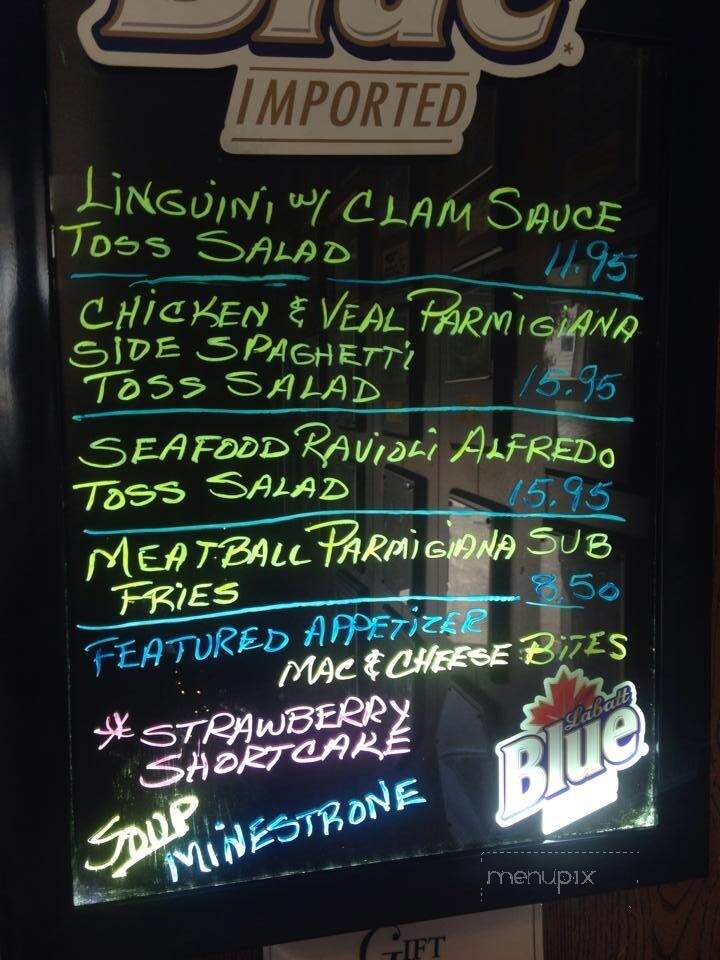 Blue
IMPORTED
LINGUINI W/ CLAM SAUCE
TOSS SALAD 11.95
CHICKEN & VEAL PARMIGIANA
SIDE SPAGHETTI
TOSS SALAD 15.95
SEAFOOD RAVIOLI ALFREDO
TOSS SALAD 15.95
MEATBALL PARMIGIANA SUB
FRIES 8.50
FEATURED APPETIZER
MAC & CHEESE BITES
* STRAWBERRY
SHORTCAKE
Labatt
Blue
SOUP
MINESTRONE
menupix
GIFT